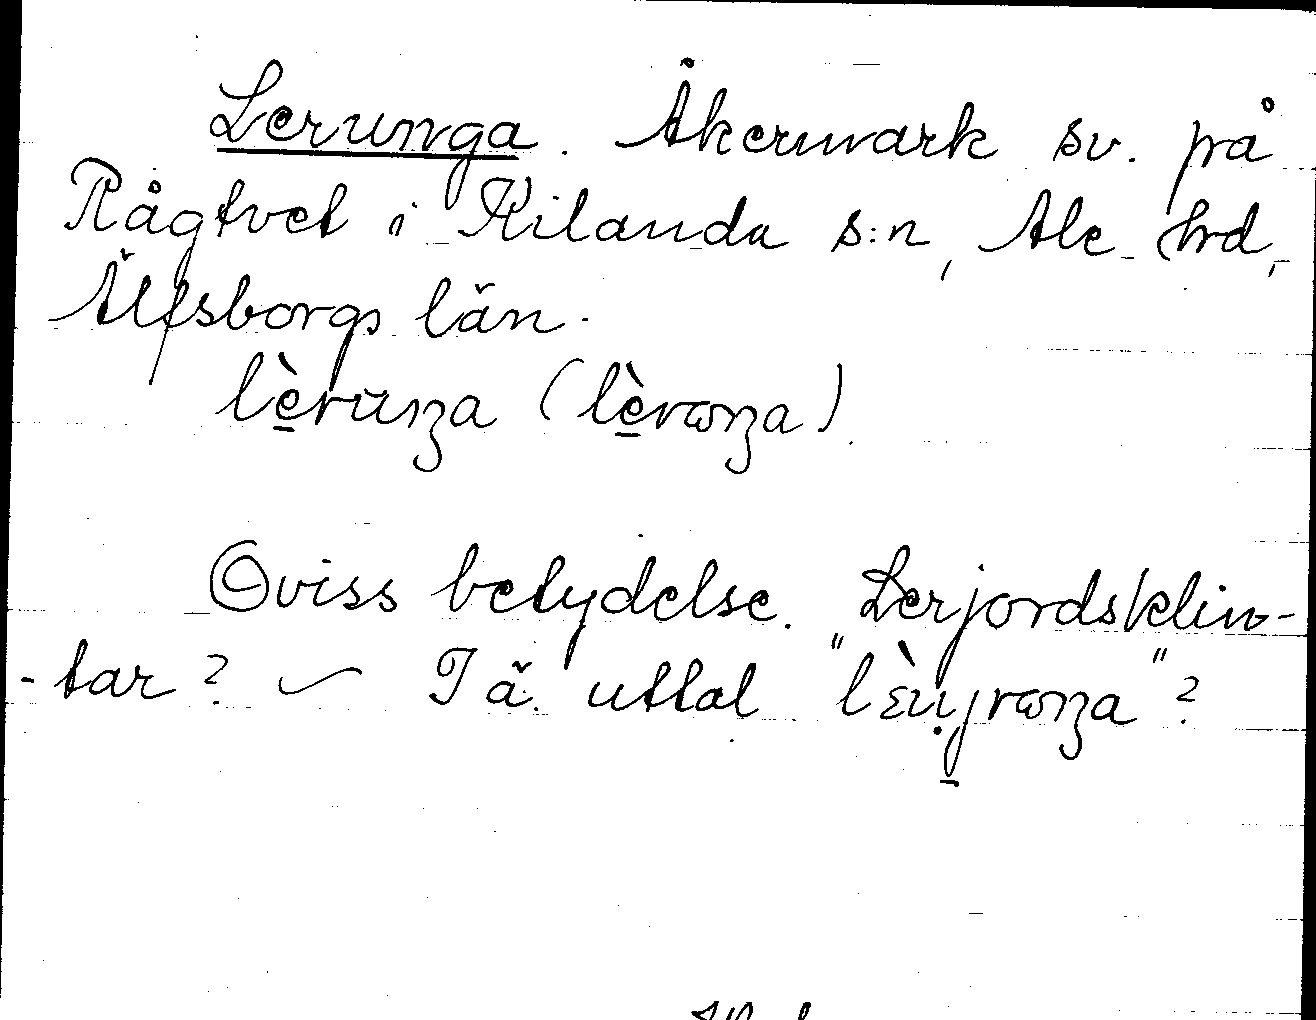 Lerunga. Åkermark sv. på
Rågtvet i Kilanda s:n, Ale hrd,
Älfsborgs län.
lèruŋa (lèrωŋa).
Oviss betydelse. Lerjordsklin-
-tar? ~ Jä. uttal